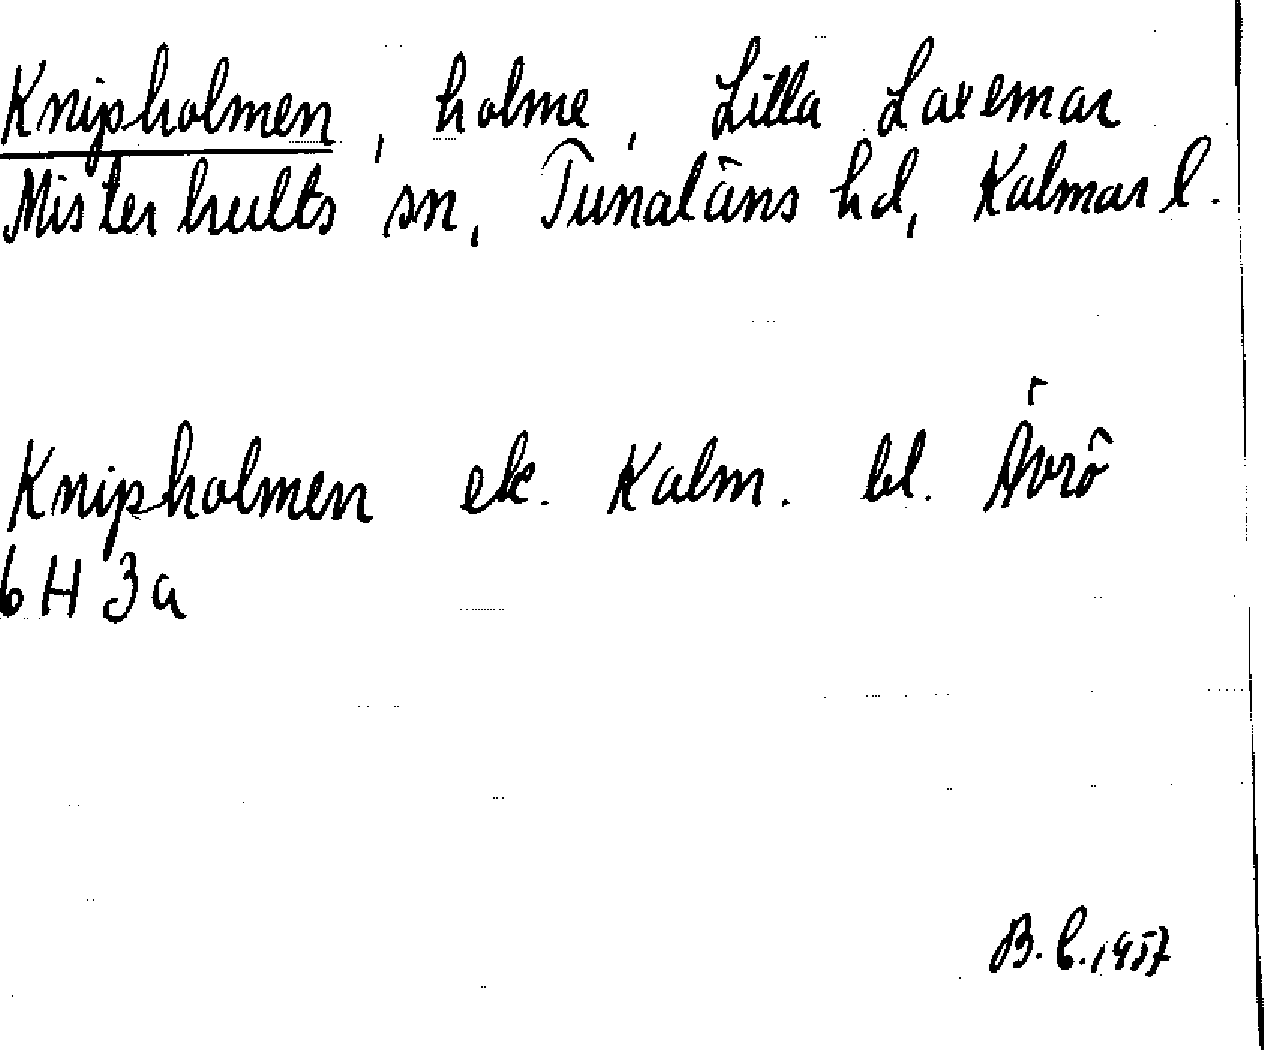 Knipholmen, holme, Lilla Laxemar
Misterhults sn, Tunaläns hd, Kalmar l.
Knipholmen ek. Kalm. bl. Ävrö
6 H 3 a
B.C. 1957